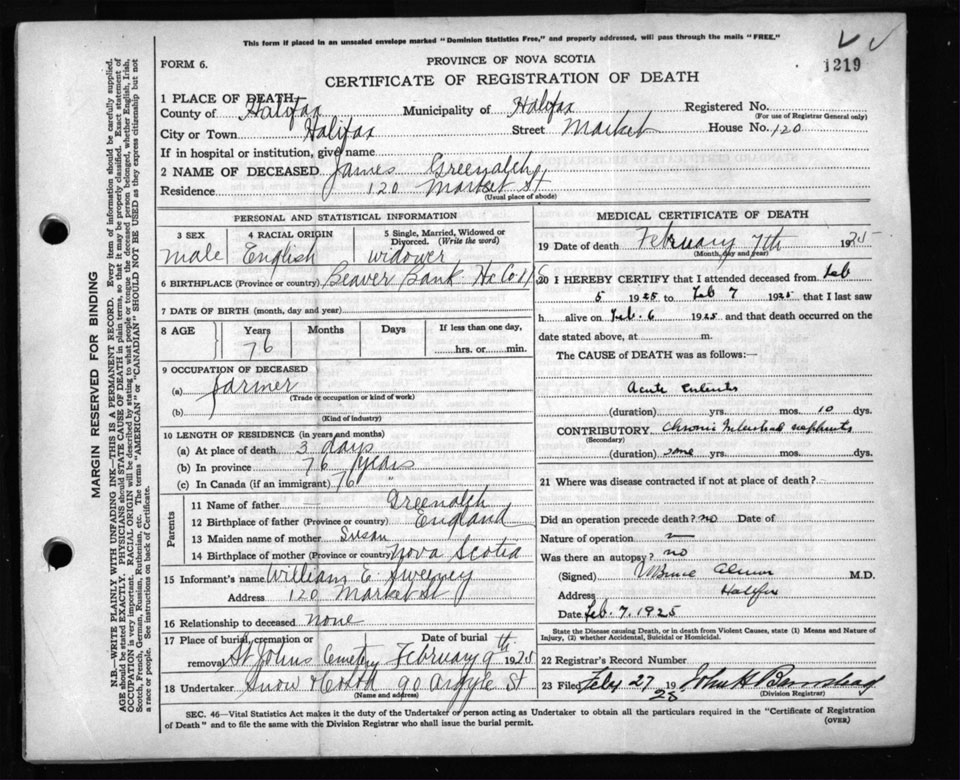 This form if placed in an unsealed envelope marked "Dominion Statistics Free," and properly addressed, will pass through the mails "FREE."
FORM 6.
PROVINCE OF NOVA SCOTIA
1219
CERTIFICATE OF REGISTRATION OF DEATH
1 PLACE OF DEATH
County of Halifax Municipality of Halifax Registered No.
(For use of Registrar General only)
City or Town Halifax Street Market House No. 120
If in hospital or institution, give name
2 NAME OF DECEASED James Greenalch
Residence 120 Market St
(Usual place of abode)
PERSONAL AND STATISTICAL INFORMATION
3 SEX 4 RACIAL ORIGIN 5 Single, Married, Widowed or Divorced. (Write the word)
male English widower
6 BIRTHPLACE (Province or country) Beaver Bank Hx Co N S
7 DATE OF BIRTH (month, day and year)
8 AGE Years Months Days If less than one day,
76 hrs. or min.
9 OCCUPATION OF DECEASED
(a) farmer
(Trade or occupation or kind of work)
(b)
(Kind of industry)
10 LENGTH OF RESIDENCE (in years and months)
(a) At place of death 3 days
(b) In province 76 years
(c) In Canada (if an immigrant) 76 "
Parents
11 Name of father Greenalch
12 Birthplace of father (Province or country) England
13 Maiden name of mother Susan
14 Birthplace of mother (Province or country) Nova Scotia
15 Informant's name William E. Sweeney
Address 120 Market St
16 Relationship to deceased none
17 Place of burial, cremation or removal St Johns Cemetery Date of burial February 9th 1925
18 Undertaker Snow 90 Argyle St
(Name and address)
MEDICAL CERTIFICATE OF DEATH
19 Date of death February 7th 1925
(Month, day and year)
20 I HEREBY CERTIFY that I attended deceased from Feb
5 1925 to Feb 7 1925 that I last saw
h alive on Feb. 6 1925 and that death occurred on the
date stated above, at m.
The CAUSE of DEATH was as follows:—
Acute Enteritis
(duration) yrs. mos. 10 dys.
CONTRIBUTORY Chronic Interstitial nephritis
(Secondary)
(duration) some yrs. mos. dys.
21 Where was disease contracted if not at place of death?
Did an operation precede death? no Date of
Nature of operation —
Was there an autopsy? no
(Signed) Almon M.D.
Address Halifax
Date Feb. 7. 1925
State the Disease causing Death, or in death from Violent Causes, state (1) Means and Nature of
Injury, (2) whether Accidental, Suicidal or Homicidal.
22 Registrar's Record Number
23 Filed Feby 27 1925 John H Barnstead
(Division Registrar)
SEC. 46—Vital Statistics Act makes it the duty of the Undertaker or person acting as Undertaker to obtain all the particulars required in the "Certificate of Registration
of Death" and to file the same with the Division Registrar who shall issue the burial permit.
(OVER)
MARGIN RESERVED FOR BINDING
N.B.—WRITE PLAINLY WITH UNFADING INK—THIS IS A PERMANENT RECORD. Every item of information should be carefully supplied.
AGE should be stated EXACTLY. PHYSICIANS should STATE CAUSE OF DEATH in plain terms, so that it may be properly classified. Exact statement of
OCCUPATION is very important. RACIAL ORIGIN will be described by stating to what people or tongue the deceased person belonged, whether English, Irish,
Scotch, French, German, Russian, Ruthenian, etc. The terms "AMERICAN" or "CANADIAN" SHOULD NOT BE USED as they express citizenship but not
a race or people. See instructions on back of Certificate.